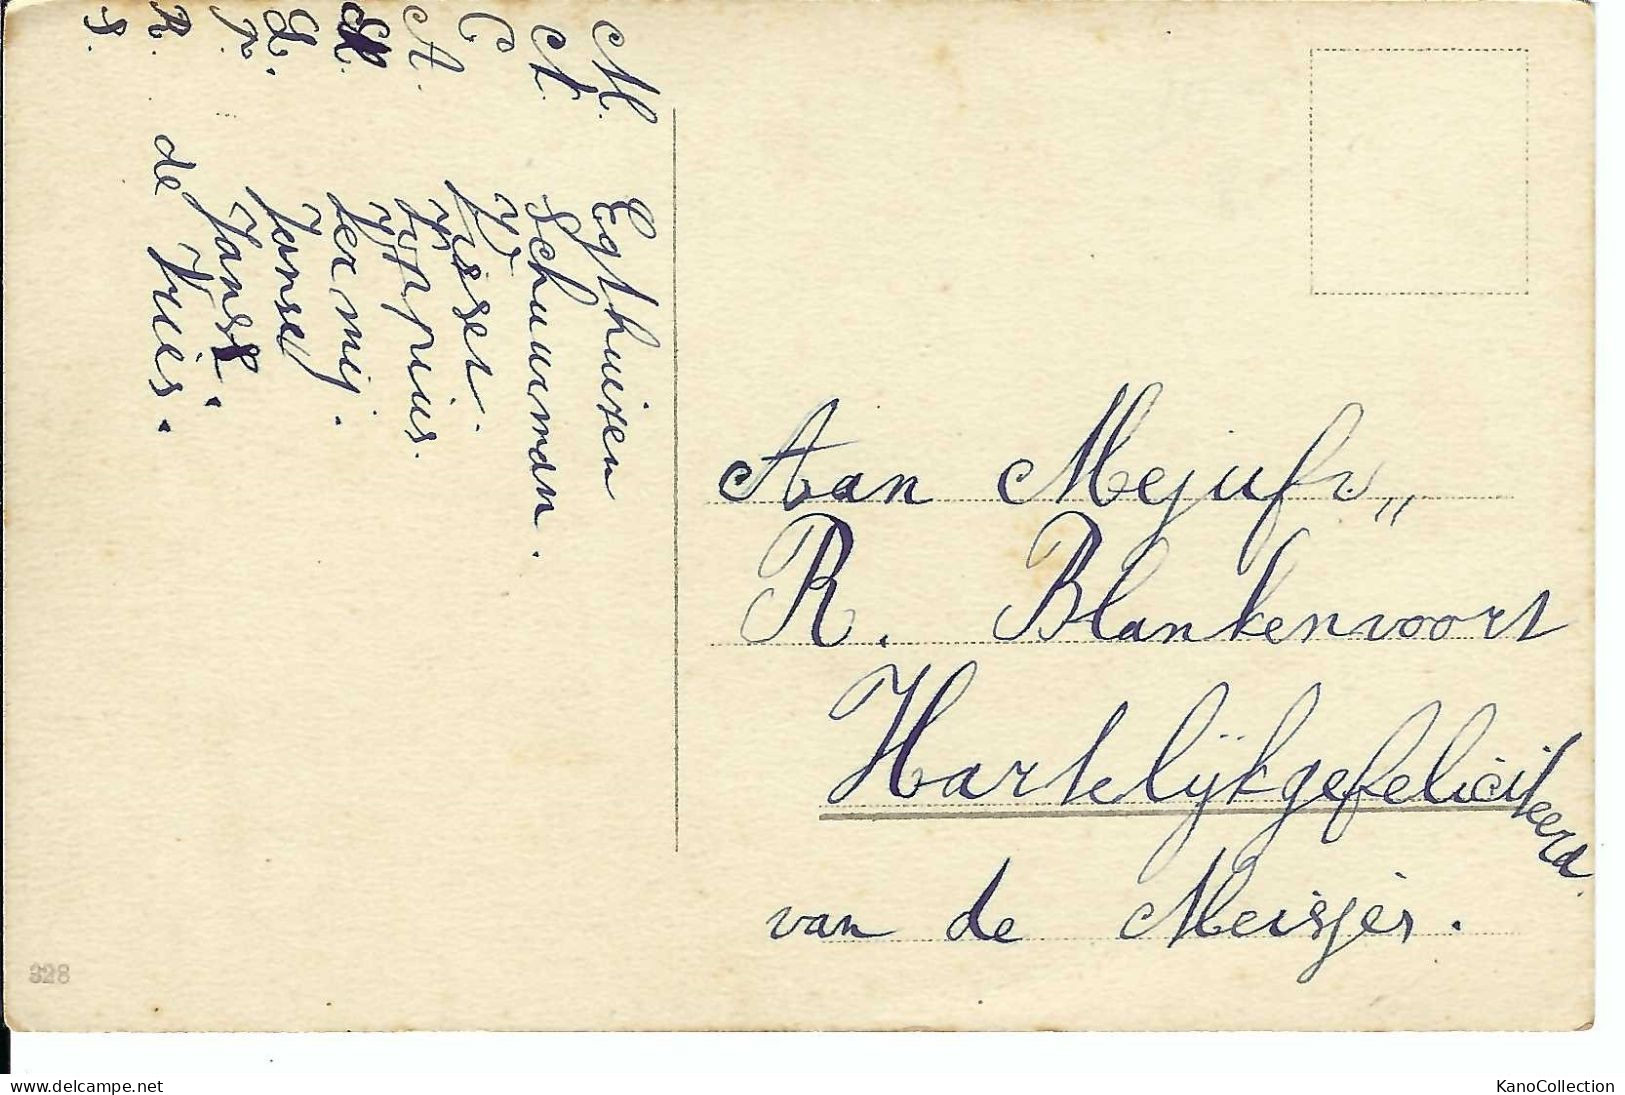 M. Egthuizen
A. Schuurman.
C. Visser.
A.
Vermij.
L. Jansen
Jansse.
R. de Vries.
S.
Aan Mejufr,,
R. Blankenvoort
Hartelijkgefeliciteerd.
van de Meisjes.
328
delcampe.net
KanoCollection